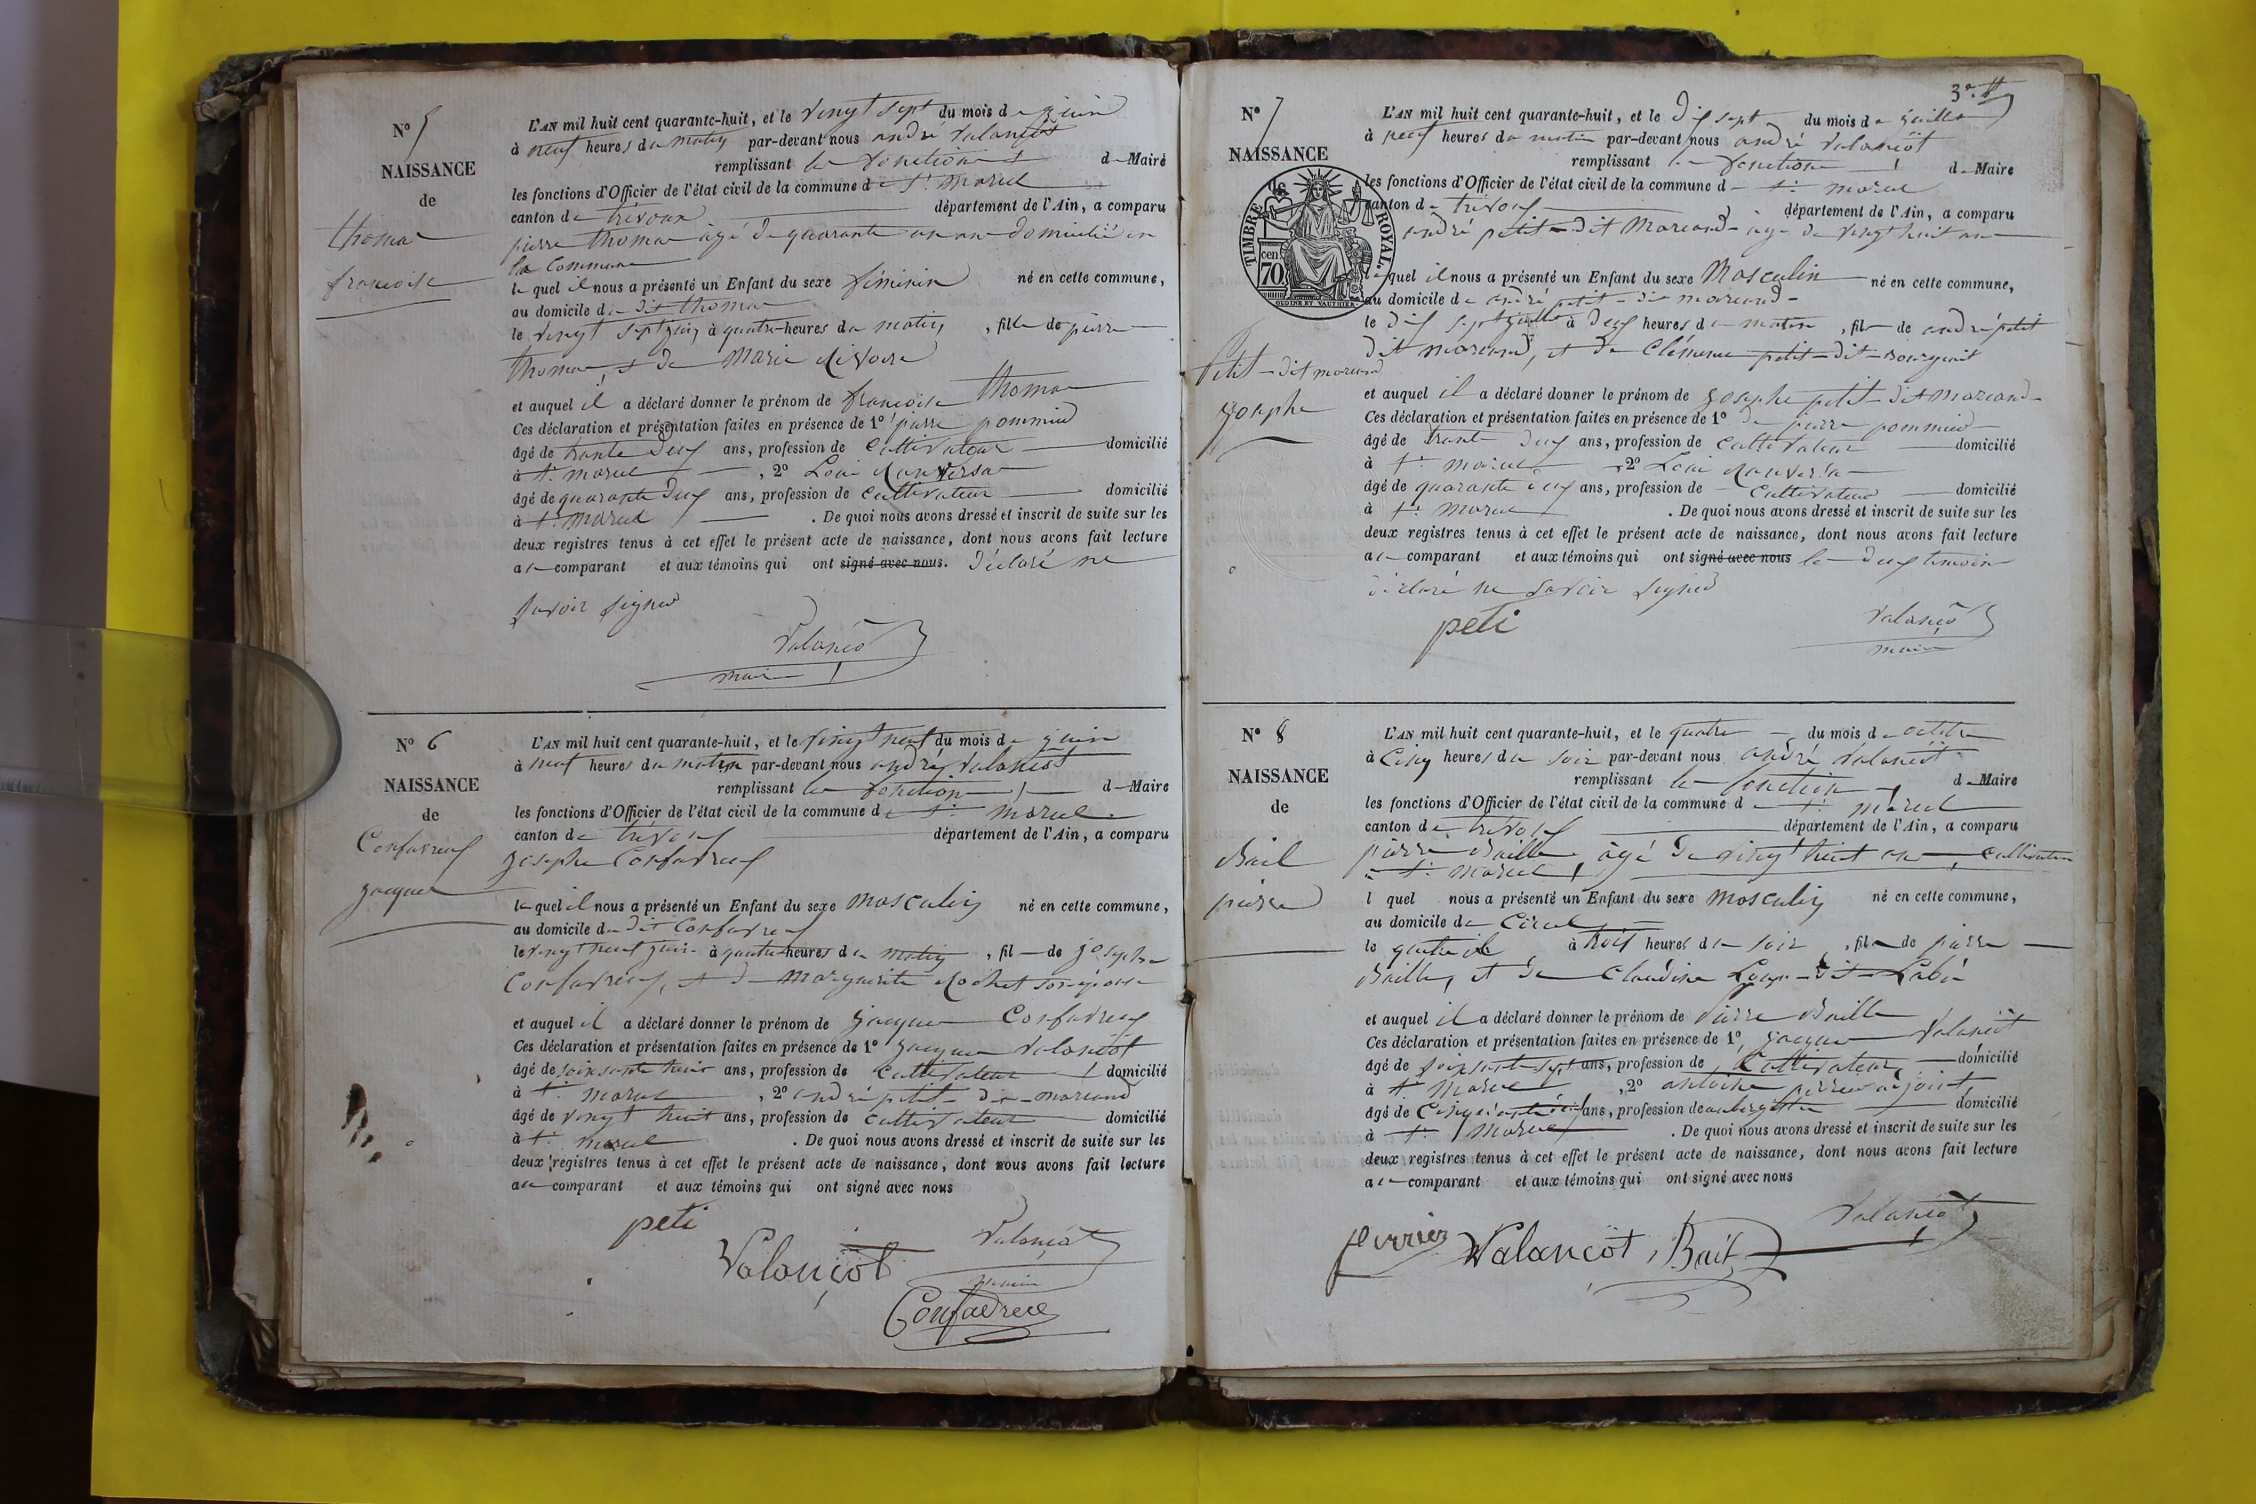 N° 5
NAISSANCE
de
thomas
françoise
L'AN mil huit cent quarante-huit, et le vingt sept du mois de juin
à neuf heures du matin par-devant nous andré valançot
remplissant les fonctions de Maire
les fonctions d'Officier de l'état civil de la commune de st marcel
canton de trévoux département de l'Ain, a comparu
pierre thomas âgé de quarante un an domicilié en
la Commune
le quel il nous a présenté un Enfant du sexe féminin né en cette commune,
au domicile du dit thomas
le vingt sept juin à quatre heures du matin, fille de pierre
thomas, et de Marie
et auquel il a déclaré donner le prénom de françoise thomas
Ces déclaration et présentation faites en présence de 1° pierre pommier
âgé de trante deux ans, profession de cultivateur domicilié
à st marcel, 2° Loui
âgé de quarante deux ans, profession de cultivateur domicilié
à st marcel. De quoi nous avons dressé et inscrit de suite sur les
deux registres tenus à cet effet le présent acte de naissance, dont nous avons fait lecture
au comparant et aux témoins qui ont signé avec nous. déclaré ne
savoir signer
Valançot
maire
N° 6
NAISSANCE
de
Confavreux
jacque
L'AN mil huit cent quarante-huit, et le vingt neuf du mois de juin
à neuf heures du matin par-devant nous andré valançot
remplissant les fonction de Maire
les fonctions d'Officier de l'état civil de la commune de st marcel
canton de trévoux département de l'Ain, a comparu
josephe Confavreux
le quel il nous a présenté un Enfant du sexe masculin né en cette commune,
au domicile du dit Confavreux
le vingt neuf juin à quatre heures du matin, fil de josephe
Confavreux, et de marguerite Rochet son épouse
et auquel il a déclaré donner le prénom de jacque Confavreux
Ces déclaration et présentation faites en présence de 1° jacque valançot
âgé de soixante huit ans, profession de cultivateur domicilié
à st marcel, 2° andré petit dit marcand
âgé de vingt huit ans, profession de cultivateur domicilié
à st marcel. De quoi nous avons dressé et inscrit de suite sur les
deux registres tenus à cet effet le présent acte de naissance, dont nous avons fait lecture
au comparant et aux témoins qui ont signé avec nous
peti
Valançot
Valançot
maire
Confavreux
3e
N° 7
NAISSANCE
de
TIMBRE ROYAL.
70 cen
OUDINE ET VAUTHIER
Petit-dit marcand
josephe
L'AN mil huit cent quarante-huit, et le dix sept du mois de juillet
à neuf heures du matin par-devant nous andré valançot
remplissant les fonction de Maire
les fonctions d'Officier de l'état civil de la commune de st marcel
canton de trévoux département de l'Ain, a comparu
andré petit-dit Marcand âgé de vingt huit an
le quel il nous a présenté un Enfant du sexe Masculin né en cette commune,
au domicile de andré petit-dit marcand
le dix sept juillet à deux heures du matin, fil de andré petit
dit marcand, et de Clémence petit-dit
et auquel il a déclaré donner le prénom de josephe petit-dit Marcand
Ces déclaration et présentation faites en présence de 1° de pierre pommier
âgé de trante deux ans, profession de cultivateur domicilié
à st marcel, 2° Loui
âgé de quarante deux ans, profession de cultivateur domicilié
à st marcel. De quoi nous avons dressé et inscrit de suite sur les
deux registres tenus à cet effet le présent acte de naissance, dont nous avons fait lecture
au comparant et aux témoins qui ont signé avec nous les deux temoins
déclaré ne savoir signer
peti
valançot
maire
N° 8
NAISSANCE
de
Bail
pierre
L'AN mil huit cent quarante-huit, et le quatre du mois de octobre
à Cinq heures du soir par-devant nous andré valançot
remplissant les fonction de Maire
les fonctions d'Officier de l'état civil de la commune de st marcel
canton de trévoux département de l'Ain, a comparu
pierre Baille âgé de vingt huit an, cultivateur
à st marcel,
l quel nous a présenté un Enfant du sexe masculin né en cette commune,
au domicile de
le quatre à trois heures du soir, fil de pierre
Baille, et de Claudine Loup-dit-Labé
et auquel il a déclaré donner le prénom de Pierre Baille
Ces déclaration et présentation faites en présence de 1°, jacque Valançot
âgé de soixante sept ans, profession de Cultivateur, domicilié
à st marcel, 2° antoine perrier adjoint,
âgé de Cinquante ans, profession de aubergiste domicilié
à st marcel. De quoi nous avons dressé et inscrit de suite sur les
deux registres tenus à cet effet le présent acte de naissance, dont nous avons fait lecture
au comparant et aux témoins qui ont signé avec nous
perrier Valançot Bail
Valançot